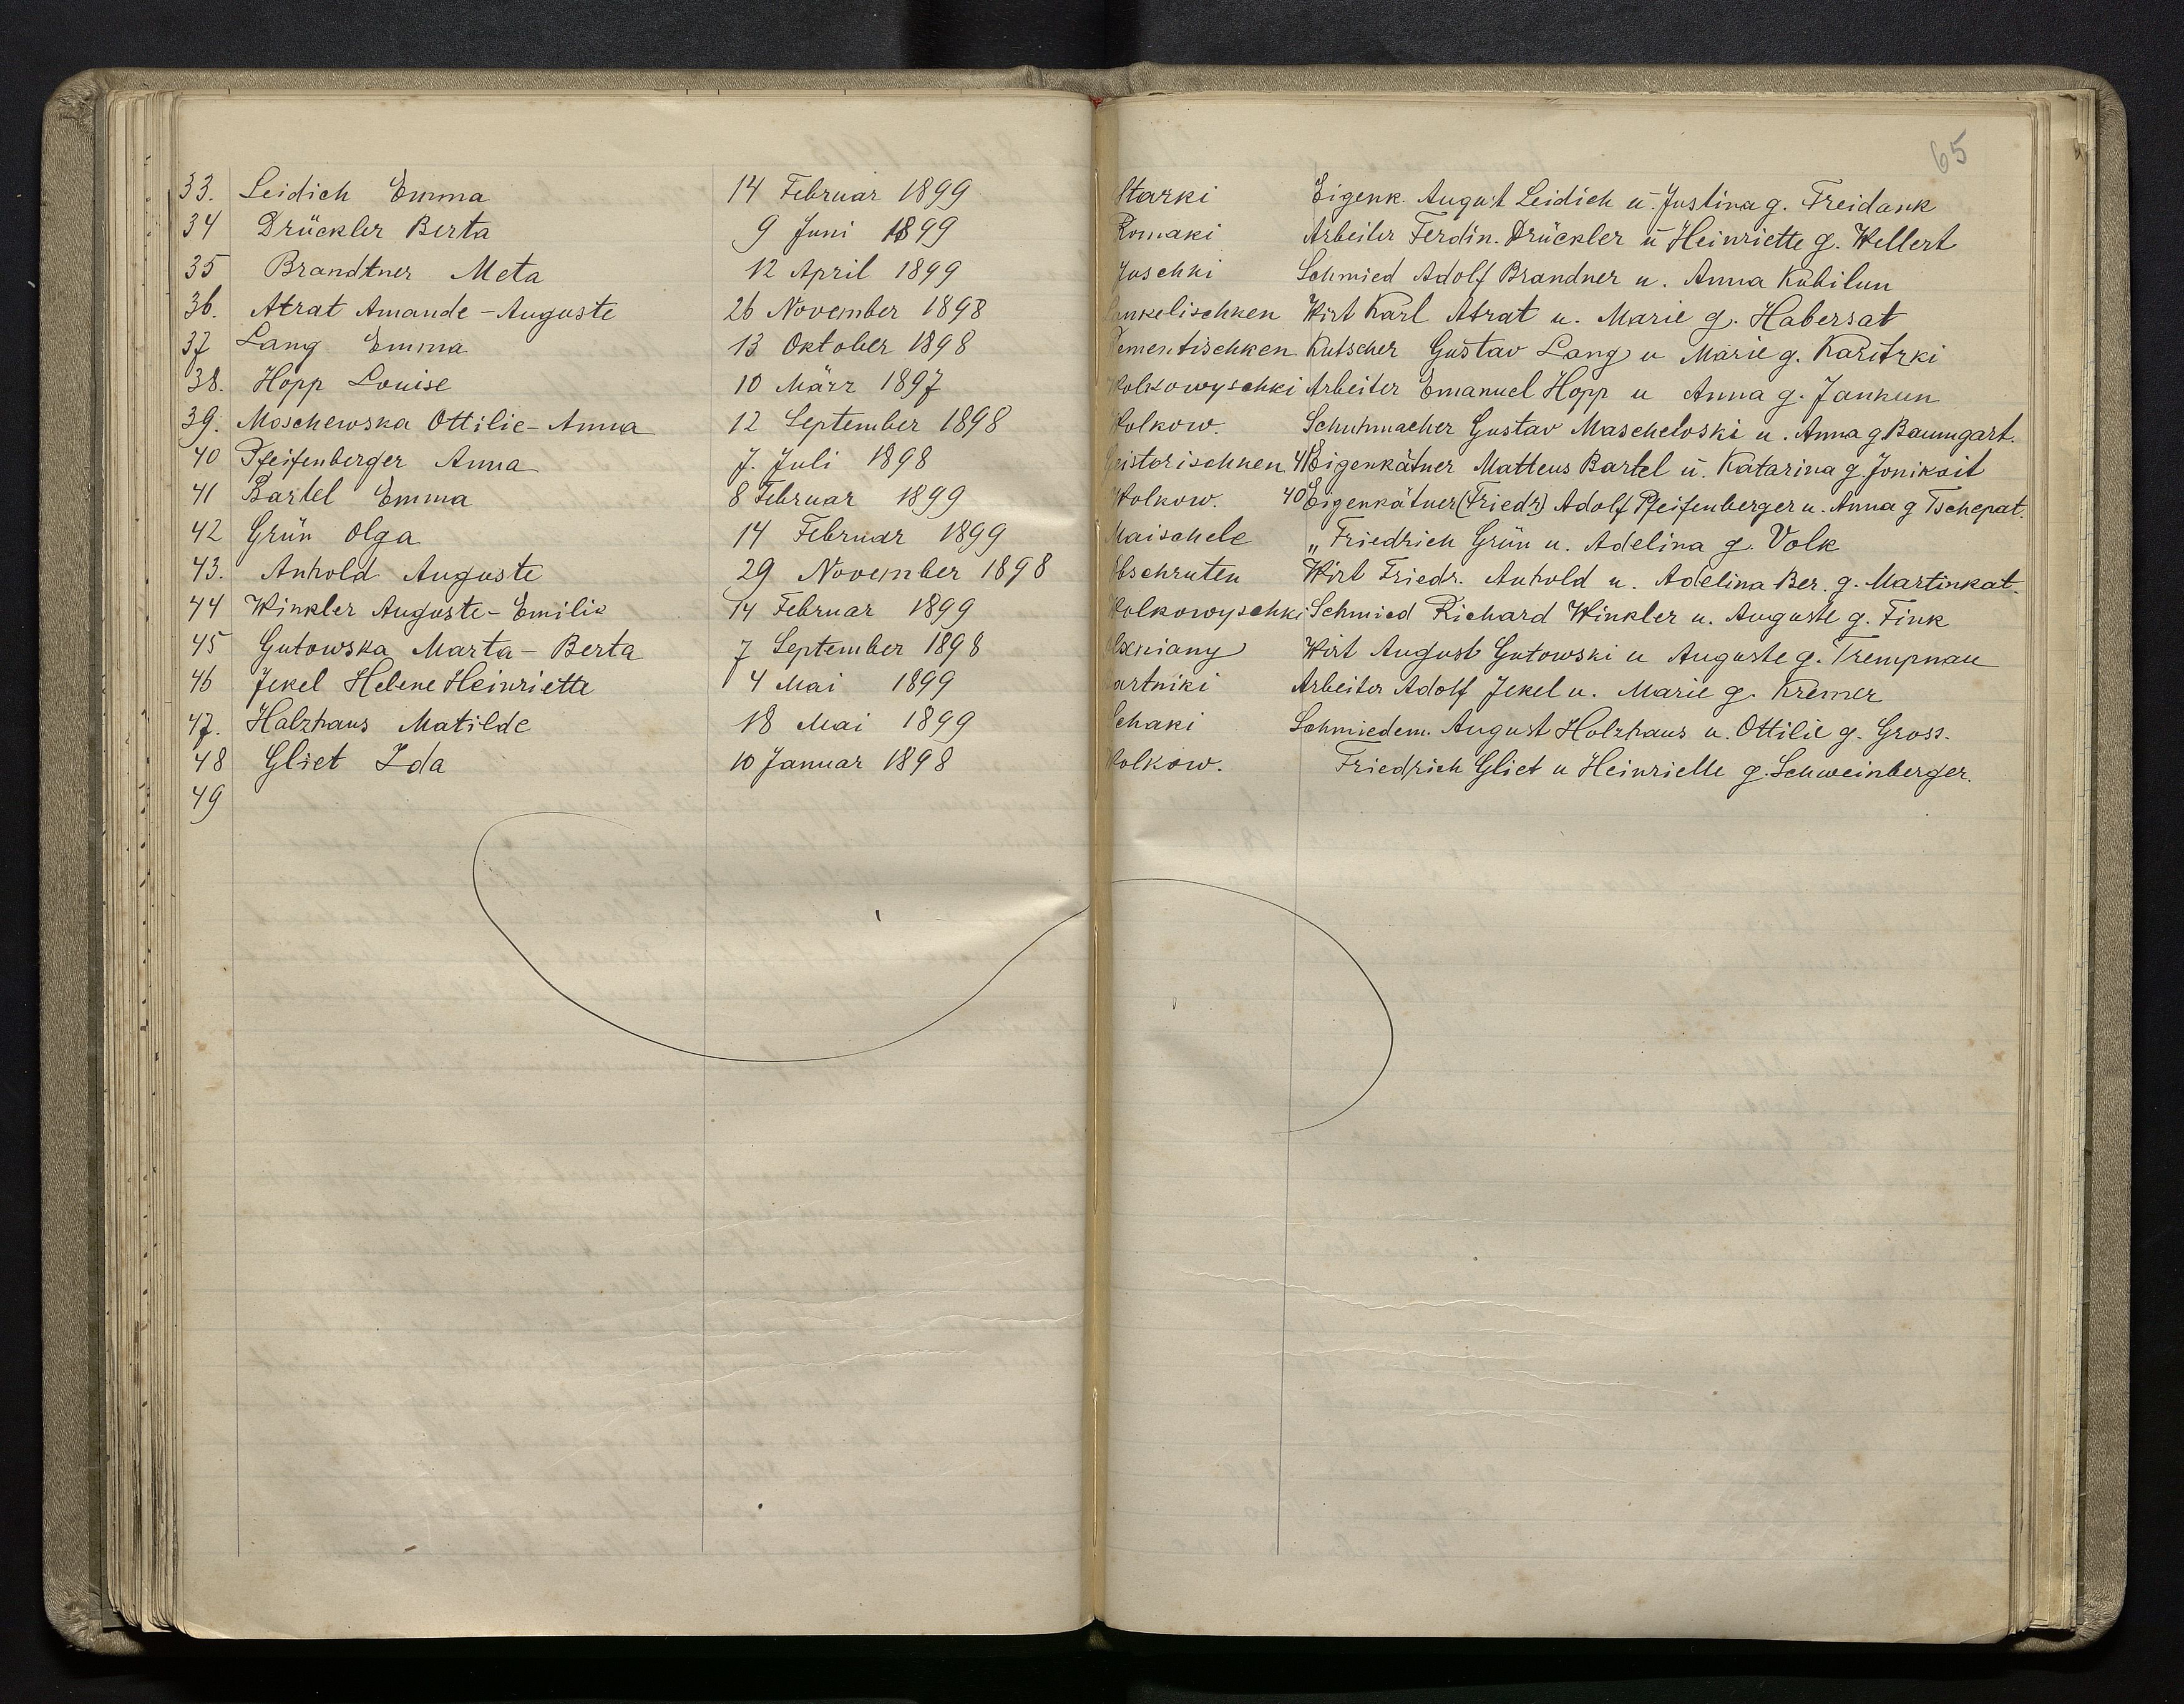 65
33. Leidich Emma 14 Februar 1899 Starki Eigenk. August Leidich u. Justina g. Freidank
34 Drückler Berta 9 Juni 1899 Romaki Arbeiter Ferdin. Drückler u Heinriette g. Wellert
35 Brandtner Meta 12 April 1899 Juschki Schmied Adolf Brandner u. Anna Kubilun
36. Atrat Amande-Auguste 26 November 1898 Lankelischken Wirt Karl Atrat u. Marie g. Habersat
37 Lang Emma 13 Oktober 1898 Kutscher Gustav Lang u Marie g. Karitzki
38. Hopp Louise 10 März 1897 Wolkowyschki Arbeiter Emanuel Hopp u Anna g. Jankun
39. Moschewska Ottilie-Anna 12 September 1898 Wolkow. Schuhmacher Gustav Mascheloski u. Anna g Baumgart.
40 Pfeifenberger Anna 7. Juli 1898 Geistarischken 41 Eigenkätner Matteus Bartel u. Katarina g Jonikait
41 Bartel Emma 8 Februar 1899 Wolkow. 40 Eigenkätner (Friedr) Adolf Pfeifenberger u. Anna g Tschepat.
42 Grün Olga 14 Februar 1899 Maischele „ Friedrich Grün u. Adelina g. Volk
43. Anhold Auguste 29 November 1898 Ebschruten Wirt Friedr. Anhold u. Adelina Ber. g. Martinkat.
44 Winkler Auguste-Emilie 14 Februar 1899 Wolkowyschki Schmied Richard Winkler u. Auguste g. Fink
45 Gutowska Marta-Berta 7 September 1898 Wirt August Gutowski u Auguste g. Trempnau
46 Jekel Helene Heinriette 4 Mai 1899 artniki Arbeiter Adolf Jekel u. Marie g. Kremer
47. Holzhaus Matilde 18 Mai 1899 Schaki Schmiedem. August Holzhaus u. Ottilie g. Gross.
48 Gliet Ida 10 Januar 1898 Wolkow. Friedrich Gliet u Heinriette g. Schweinberger.
49